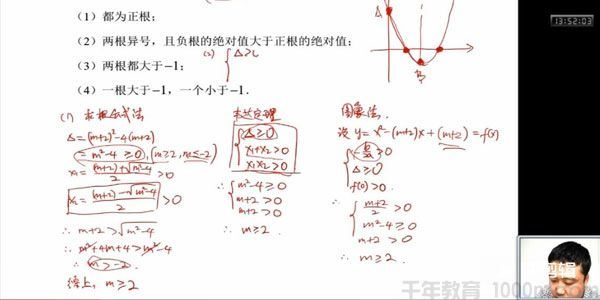 13:52:03
（1）都为正根；
（2）两根异号，且负根的绝对值大于正根的绝对值；
（3）两根都大于−1；
（4）一根大于−1，一个小于−1．
(1) 求根公式法
Δ=(m+2)²-4(m+2)
=m²-4≥0, (m≥2, m≤-2)
x₁=((m+2)+√(m²-4))/2>0
x₂=((m+2)-√(m²-4))/2>0
∴ m+2>√(m²-4)
∴ m²+4m+4>m²-4
∴ m>-2.
综上, m≥2
韦达定理
Δ≥0
x₁+x₂>0
x₁x₂>0
∴ m²-4≥0
m+2>0
m+2>0
∴ m≥2.
图象法.
设 y=x²-(m+2)x+(m+2)=f(x)
Δ≥0
f(0)>0.
∴ (m+2)/2>0
m²-4≥0
m+2>0
∴ m≥2.
千年教育